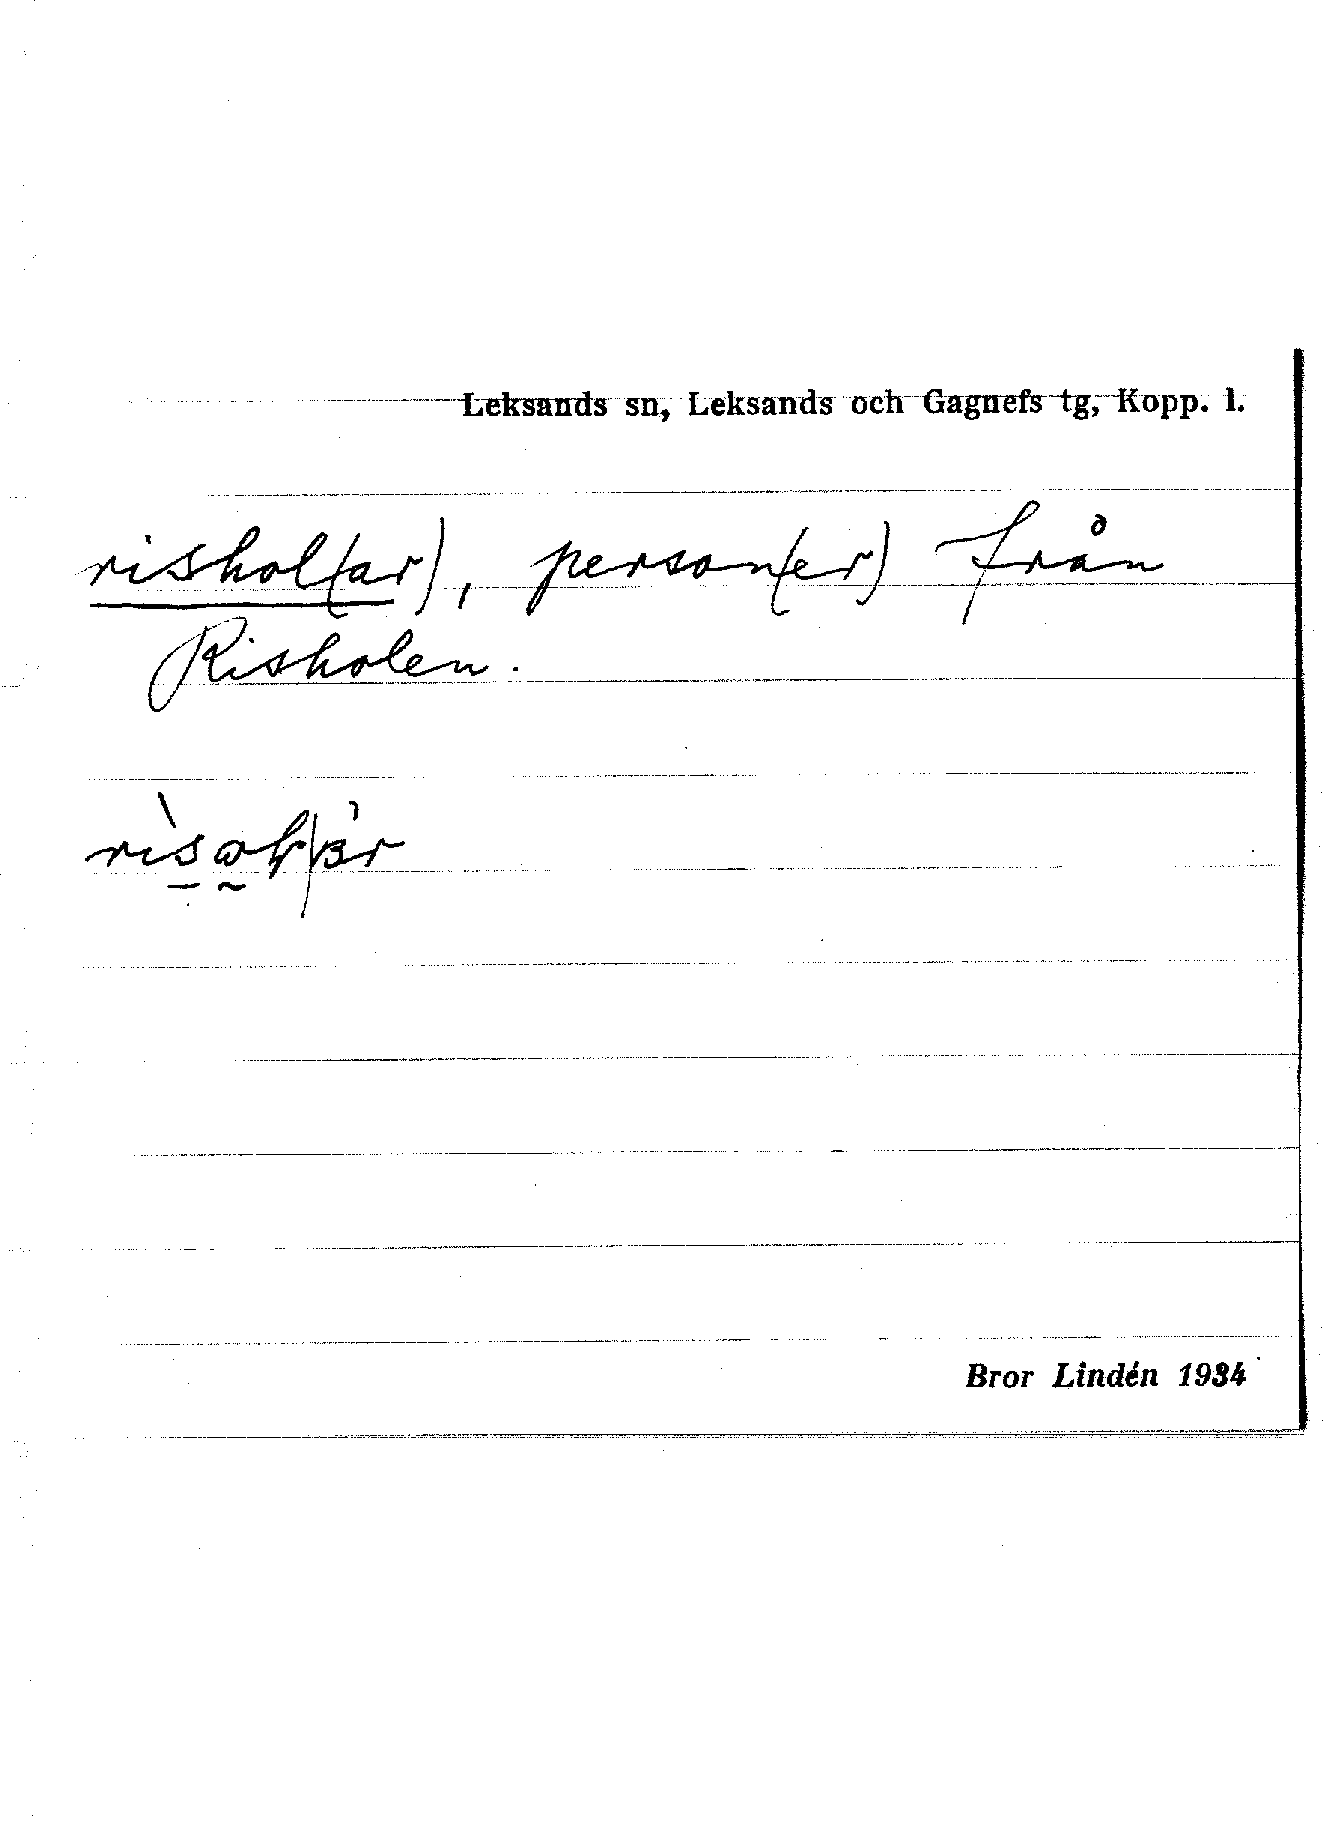 Leksands sn, Leksands och Gagnefs tg, Kopp. l.
rishol(ar), person(er) från
Risholen.
Bror Lindén 1934